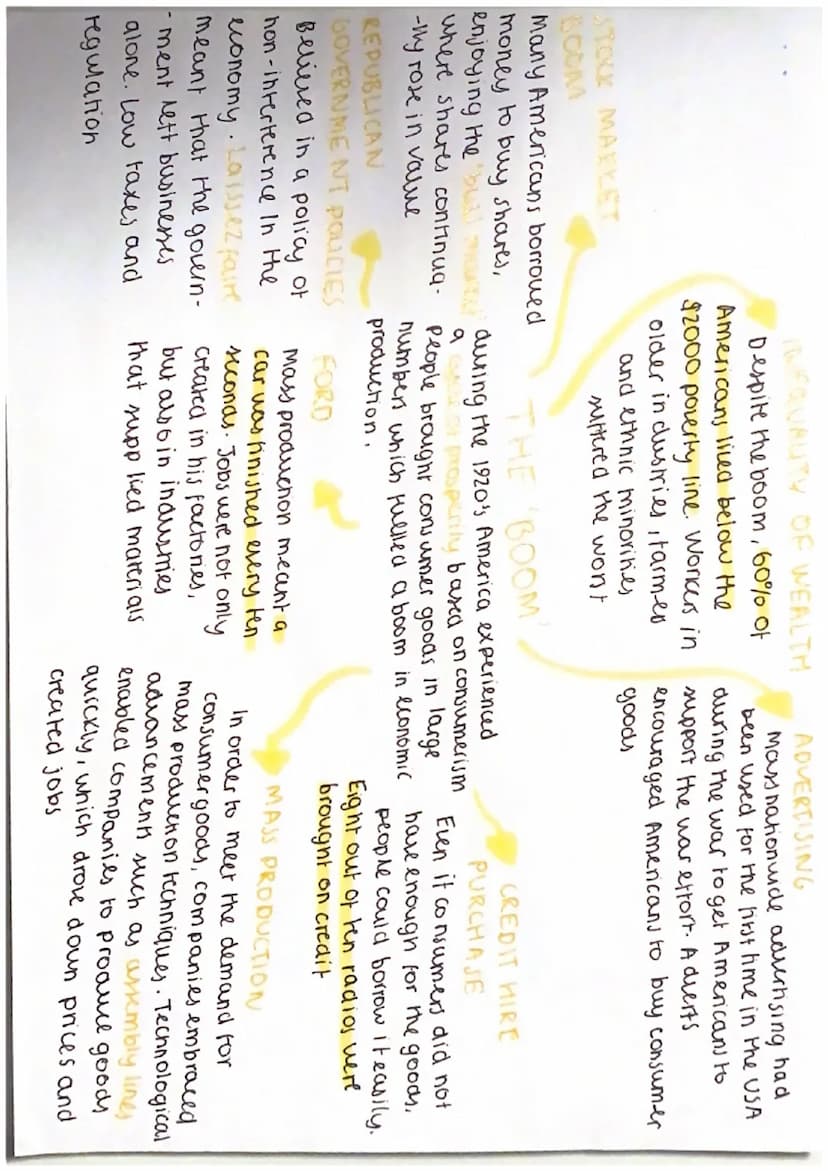 THE 'BOOM'
during the 1920's America experienced
a cycle of prosperity based on consumerism
people brought consumer goods in large
numbers which fuelled a boom in economic
production.
STOCK MARKET
BOOM
Many Americans borrowed
money to buy shares,
enjoying the 'bull market'
where shares continua-
-lly rose in value
INEQUALITY OF WEALTH
Despite the boom, 60% of
Americans lived below the
$2000 poverty line. Workers in
older industries, farmes
and ethnic minorities
suffured the worst
ADVERTISING
Mass nationwide advertising had
been used for the first time in the USA
during the war to get Americans to
support the war effort. Adverts
encouraged Americans to buy consumer
goods
REPUBLICAN
GOVERNMENT POLICIES
Believed in a policy of
non-interference in the
economy. Laissez faire
meant that the govern-
-ment left businesses
alone. Low taxes and
regulation
FORD
Mass production meant a
car was finished every ten
seconds. Jobs were not only
created in his factories,
but also in industries
that supplied materials
MASS PRODUCTION
In order to meet the demand for
consumer goods, companies embraced
mass production techniques. Technological
advancements such as assembly lines
enabled companies to produce goods
quickly, which drove down prices and
created jobs
CREDIT HIRE
PURCHASE
Even if consumers did not
have enough for the goods,
people could borrow it easily.
Eight out of ten radios were
brought on credit